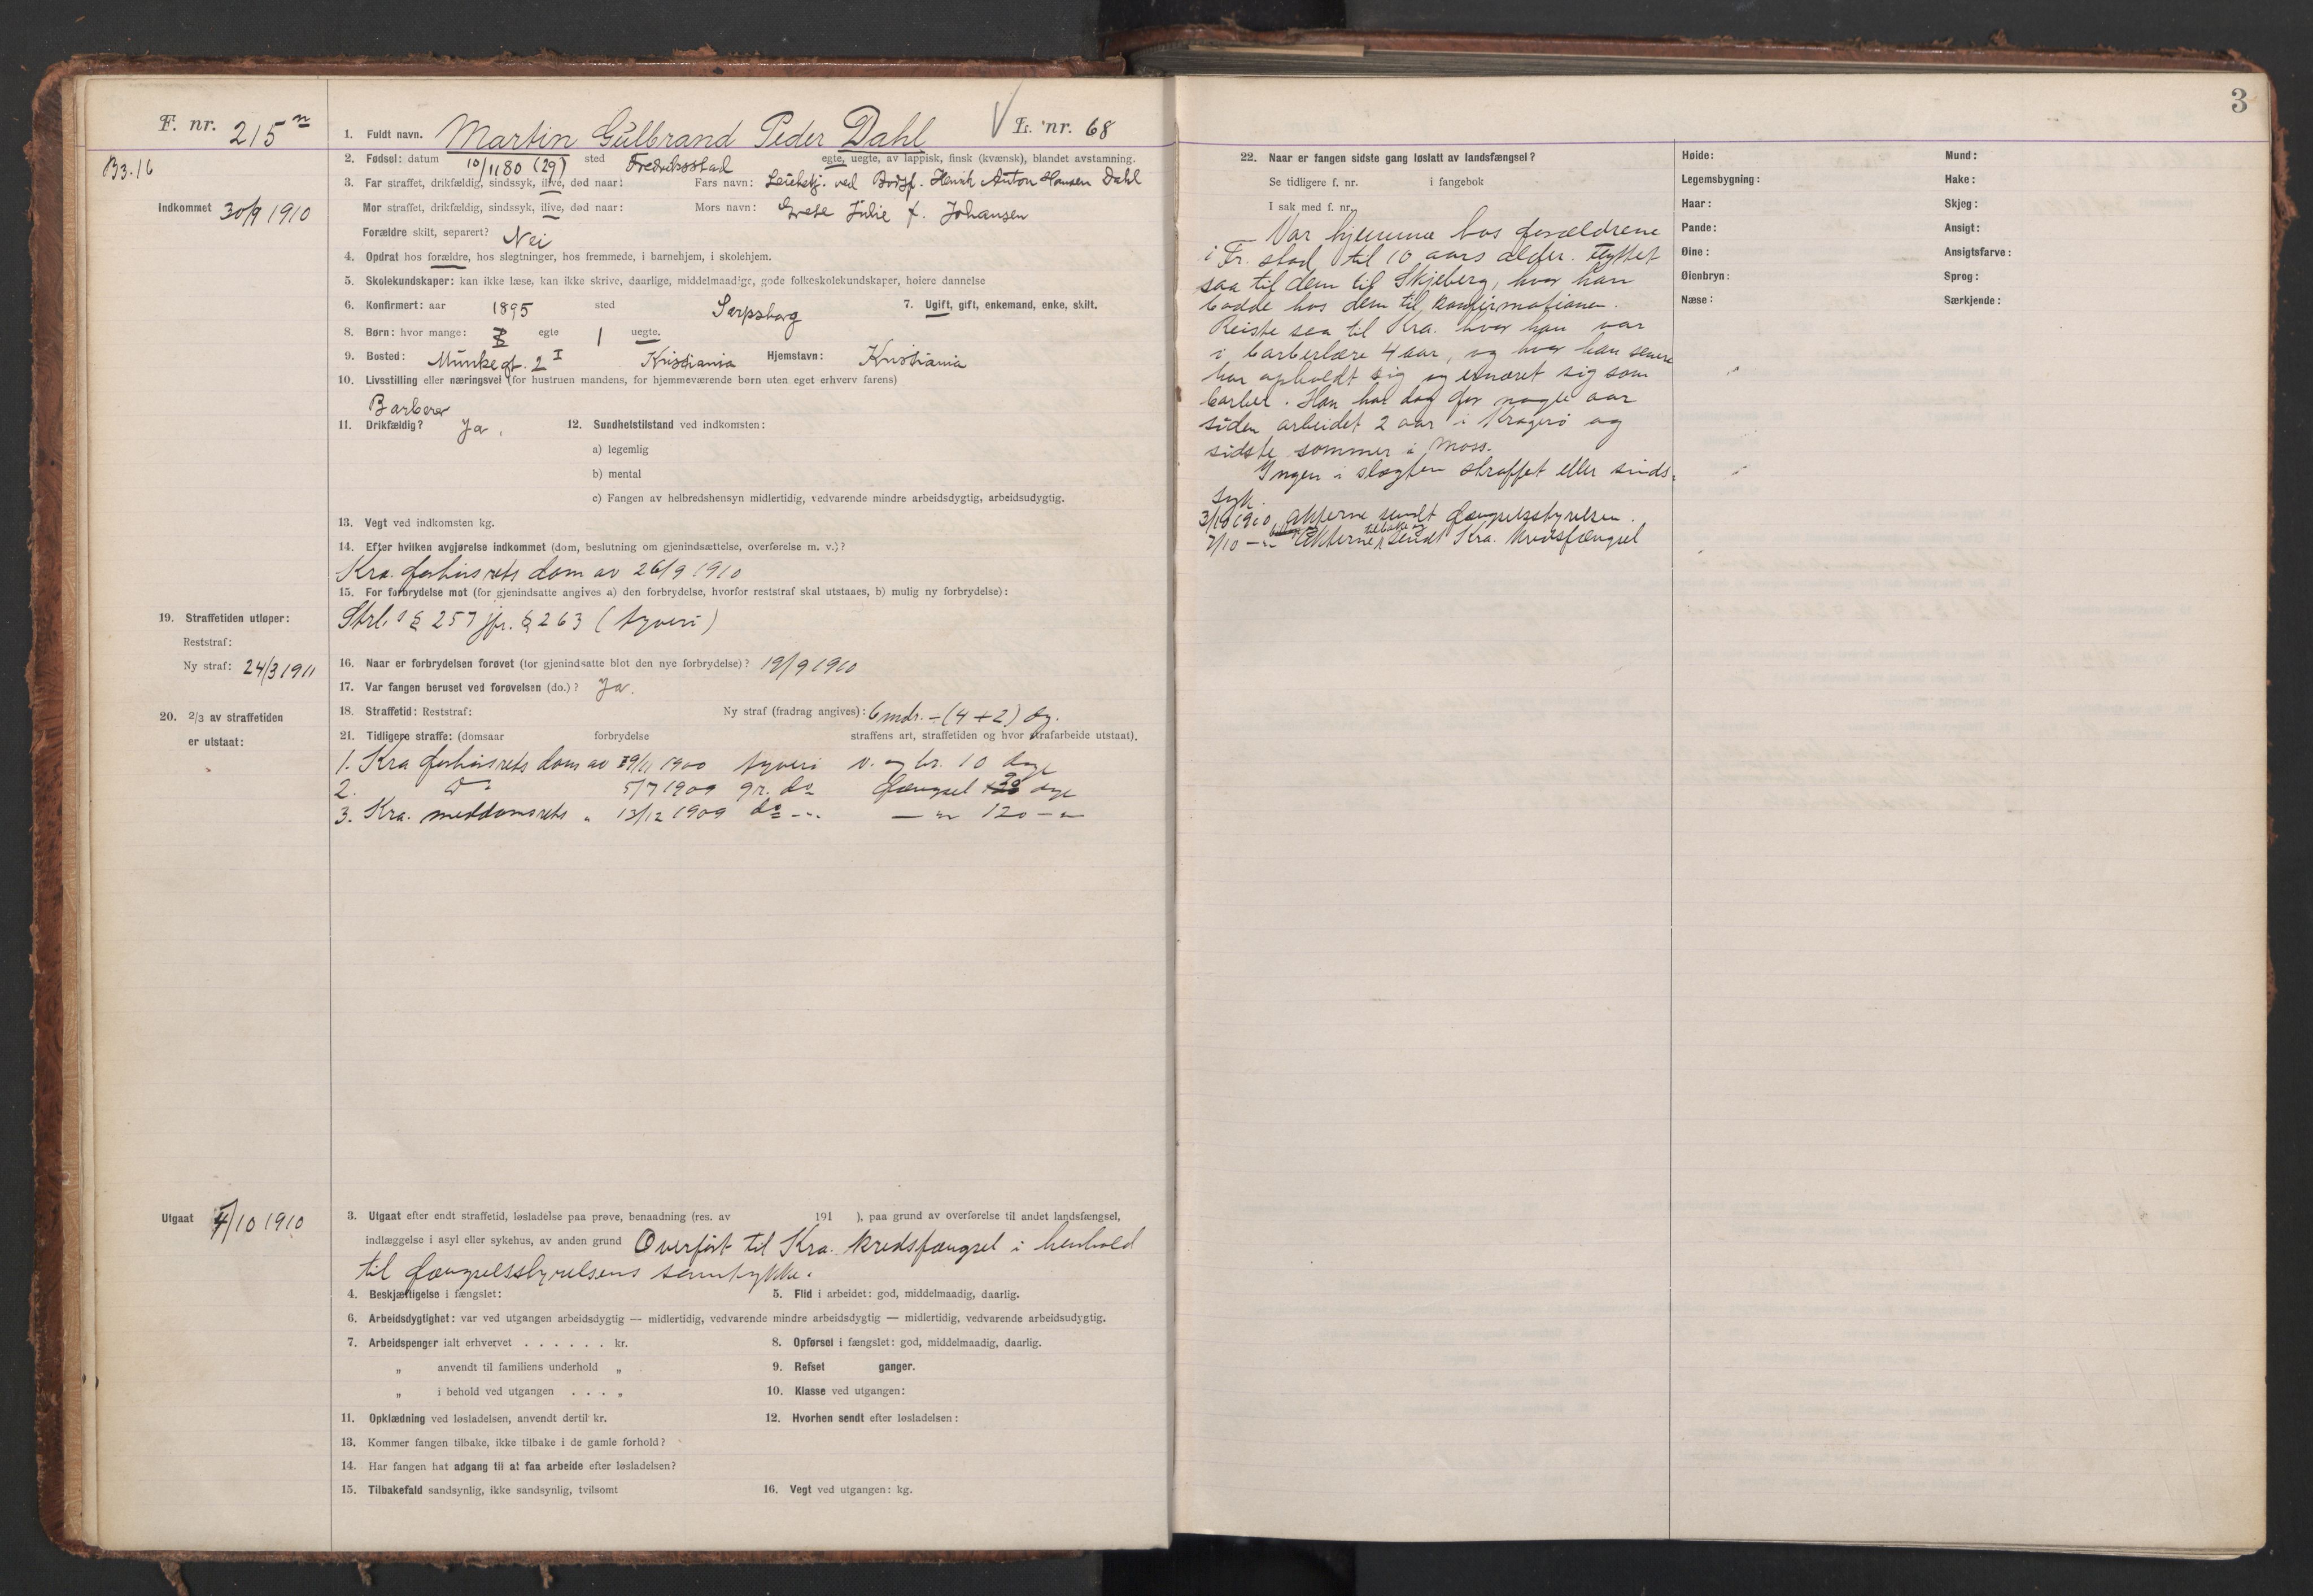 F. nr. 215 n
1. Fuldt navn. Martin Gulbrand Peder Dahl
L. nr. 68
B3.16
2. Fødsel: datum 10/11 80 (29) sted Fredriksstad egte, uegte, av lappisk, finsk (kvænsk), blandet avstamning.
3. Far straffet, drikfældig, sindssyk, ilive, død naar: Fars navn: ved Henrik Anton Hansen Dahl
Indkommet 30/9 1910
Mor straffet, drikfældig, sindssyk, ilive, død naar: Mors navn: Grete Julie f. Johansen
Forældre skilt, separert? Nei
4. Opdrat hos forældre, hos slegtninger, hos fremmede, i barnehjem, i skolehjem.
5. Skolekundskaper: kan ikke læse, kan ikke skrive, daarlige, middelmaadige, gode folkeskolekundskaper, høiere dannelse
6. Konfirmert: aar 1895 sted Sarpsborg 7. Ugift, gift, enkemand, enke, skilt.
8. Børn: hvor mange: egte 1 uegte.
9. Bosted: Munkegt. 2 I Kristiania Hjemstavn: Kristiania
10. Livsstilling eller næringsvei (for hustruen mandens, for hjemmeværende børn uten eget erhverv farens)
Barberer
11. Drikfældig? Ja. 12. Sundhetstilstand ved indkomsten:
a) legemlig
b) mental
c) Fangen av helbredshensyn midlertidig, vedvarende mindre arbeidsdygtig, arbeidsudygtig.
13. Vegt ved indkomsten kg.
14. Efter hvilken avgjørelse indkommet (dom, beslutning om gjenindsættelse, overførelse m. v.)?
Kra. forhørsrets dom av 26/9 1910
15. For forbrydelse mot (for gjenindsatte angives a) den forbrydelse, hvorfor reststraf skal utstaaes, b) mulig ny forbrydelse):
19. Straffetiden utløper:
Strl. § 257 jfr. § 263 (tyveri)
Reststraf:
Ny straf: 24/3 1911
16. Naar er forbrydelsen forøvet (for gjenindsatte blot den nye forbrydelse)? 19/9 1910
17. Var fangen beruset ved forøvelsen (do.)? Ja.
20. 2/3 av straffetiden
er utstaat:
18. Straffetid: Reststraf: Ny straf (fradrag angives): 6 mdr. ÷ (4 + 2) dg.
21. Tidligere straffe: (domsaar forbrydelse straffens art, straffetiden og hvor strafarbeide utstaat).
1. Kra forhørsrets dom av 29/11 1900 tyveri v. og br. 10 dage
2. Do 5/7 1909 gr. do fængsel 90 dge
3. Kra. meddomsrets " 13/12 1909 do - " - " 120 - "
Utgaat 4/10 1910
3. Utgaat efter endt straffetid, løsladelse paa prøve, benaadning (res. av 191 ), paa grund av overførelse til andet landsfængsel,
indlæggelse i asyl eller sykehus, av anden grund Overført til Kra. kredsfængsel i henhold
til fængselsstyrelsens samtykke.
4. Beskjæftigelse i fængslet: 5. Flid i arbeidet: god, middelmaadig, daarlig.
6. Arbeidsdygtighet: var ved utgangen arbeidsdygtig — midlertidig, vedvarende mindre arbeidsdygtig — midlertidig, vedvarende arbeidsudygtig.
7. Arbeidspenger ialt erhvervet . . . . . . kr. 8. Opførsel i fængslet: god, middelmaadig, daarlig.
" anvendt til familiens underhold " 9. Refset ganger.
" i behold ved utgangen . . . " 10. Klasse ved utgangen:
11. Opklædning ved løsladelsen, anvendt dertil kr. 12. Hvorhen sendt efter løsladelsen:
13. Kommer fangen tilbake, ikke tilbake i de gamle forhold?
14. Har fangen hat adgang til at faa arbeide efter løsladelsen?
15. Tilbakefald sandsynlig, ikke sandsynlig, tvilsomt 16. Vegt ved utgangen: kg.
3
22. Naar er fangen sidste gang løslatt av landsfængsel?
Se tidligere f. nr. i fangebok
I sak med f. nr.
Var hjemme hos forældrene
i Fr. stad til 10 aars alder. Flyttet
saa til dem til Skjeberg, hvor han
bodde hos dem til konfirmationen.
Reiste saa til Kra. hvor han var
i barberlære 4 aar, og hvor han senere
har opholdt sig og ernæret sig som
barber. Han har dog for nogle aar
siden arbeidet 2 aar i Kragerø og
sidste sommer i Moss.
Ingen i slægten straffet eller sinds-
syk.
3/10 1910 Akterne sendt fængselsstyrelsen.
7/10 - " Akterne tilbake og sendt Kra. kredsfængsel
Høide: Mund:
Legemsbygning: Hake:
Haar: Skjeg:
Pande: Ansigt:
Øine: Ansigtsfarve:
Øienbryn: Sprog:
Næse: Særkjende: